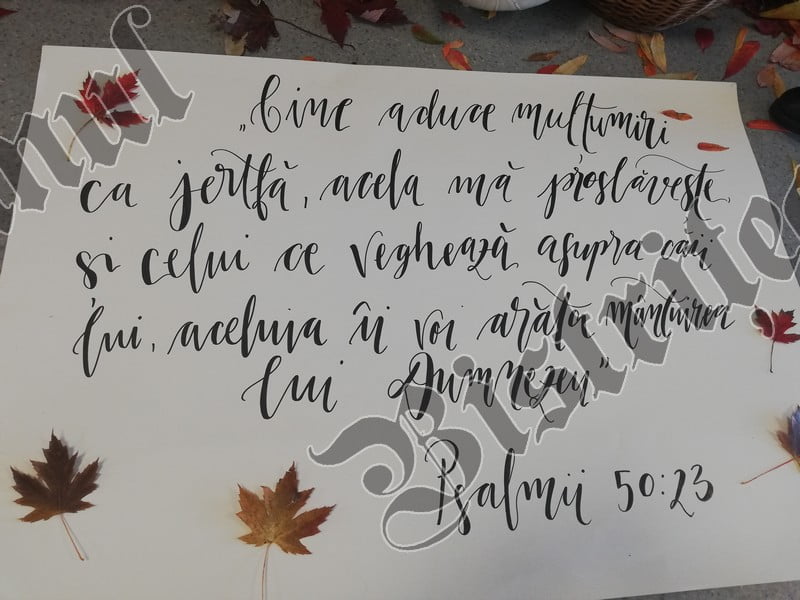 „Cine aduce mulțumiri
ca jertfă, acela mă proslăvește,
și celui ce veghează asupra căii
lui, aceluia îi voi arăta mântuirea
lui Dumnezeu”
Psalmii 50:23